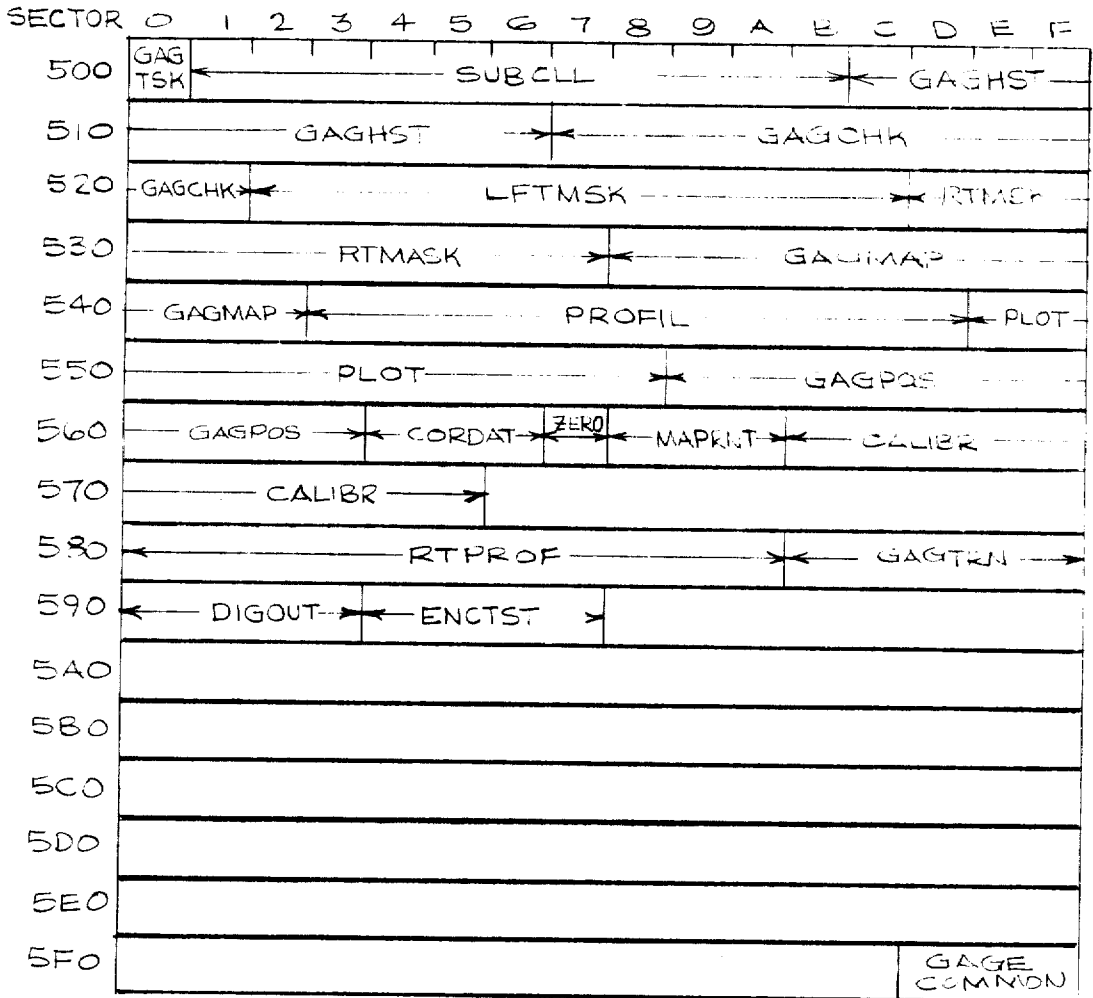 SECTOR 0 1 2 3 4 5 6 7 8 9 A B C D E F
500 GAG TSK SUBCLL GAGHST
510 GAGHST GAGCHK
520 GAGCHK LFTMSK RTMSK
530 RTMASK GAGMAP
540 GAGMAP PROFIL PLOT
550 PLOT GAGPOS
560 GAGPOS CORDAT ZERO MAPRNT CALIBR
570 CALIBR
580 RTPROF GAGTRN
590 DIGOUT ENCTST
5A0
5B0
5C0
5D0
5E0
5F0 GAGE COMMON